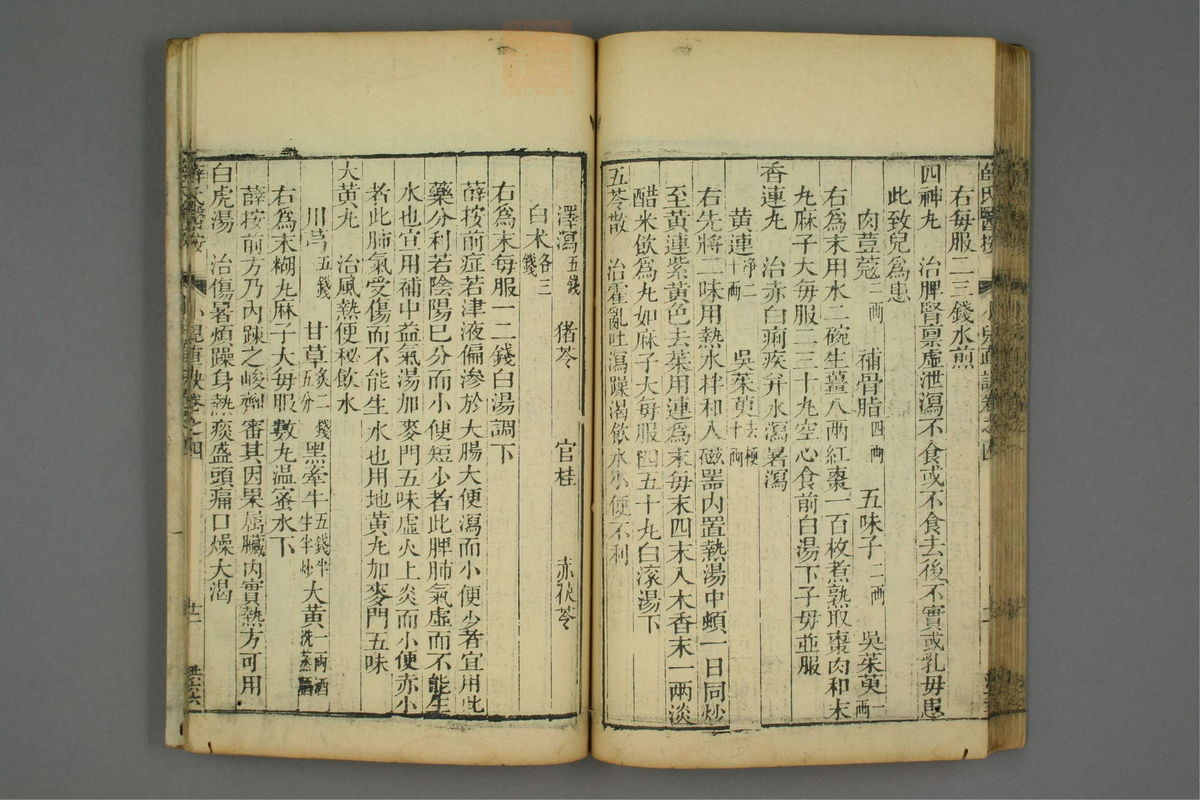 右每服二三錢水煎
四神丸　治脾腎禀虛泄瀉不食或不食去後不實或乳母患
此致兒爲患
肉荳蔻二兩　補骨脂四兩　五味子二兩　吳茱萸一兩
右爲末用水二碗生薑八兩紅棗一百枚煮熟取棗肉和末
丸麻子大每服二三十丸空心食前白湯下子母並服
香連丸　治赤白痢疾并水瀉暑瀉
黄連淨二十兩　吳茱萸去梗十兩
右先將二味用熱水拌和入磁器內置熱湯中頓一日同炒
至黄連紫黄色去茱用連爲末每末四兩入木香末一兩淡
醋米飲爲丸如麻子大每服四五十丸白滾湯下
五苓散　治霍亂吐瀉躁渴飲水小便不利
澤瀉五錢　猪苓　官桂　赤茯苓
白术各三錢
右爲末每服一二錢白湯調下
薛按前症若津液偏滲於大腸大便瀉而小便少者宜用此
藥分利若陰陽已分而小便短少者此脾肺氣虛而不能生
水也宜用補中益氣湯加麥門五味虛火上炎而小便赤少
者此肺氣受傷而不能生水也用地黄丸加麥門五味
大黄丸　治風熱便秘飲水
川芎五錢　甘草炙二錢五分　黑牽牛五錢半生半炒　大黄一兩酒洗蒸
右爲末糊丸麻子大每服數丸温蜜水下
薛按前方乃內疎之峻劑審其因果屬臟內實熱方可用
白虎湯　治傷暑煩躁身熱痰盛頭痛口燥大渴
薛氏醫按
小兒直訣卷之四